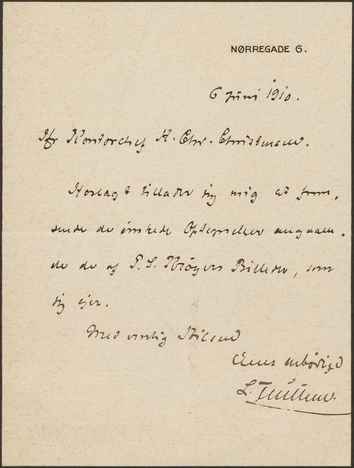 NØRREGADE 6.
6 Juni 1910.
Hr Kontorchef H. Chr. Christensen.
Hoslagt tillader jeg mig at frem,
sende de ønskede Oplysninger angaaen,
de de af P. S. Krøyers Billeder, som
jeg ejer.
Med venlig Hilsen
Deres ærbødigst